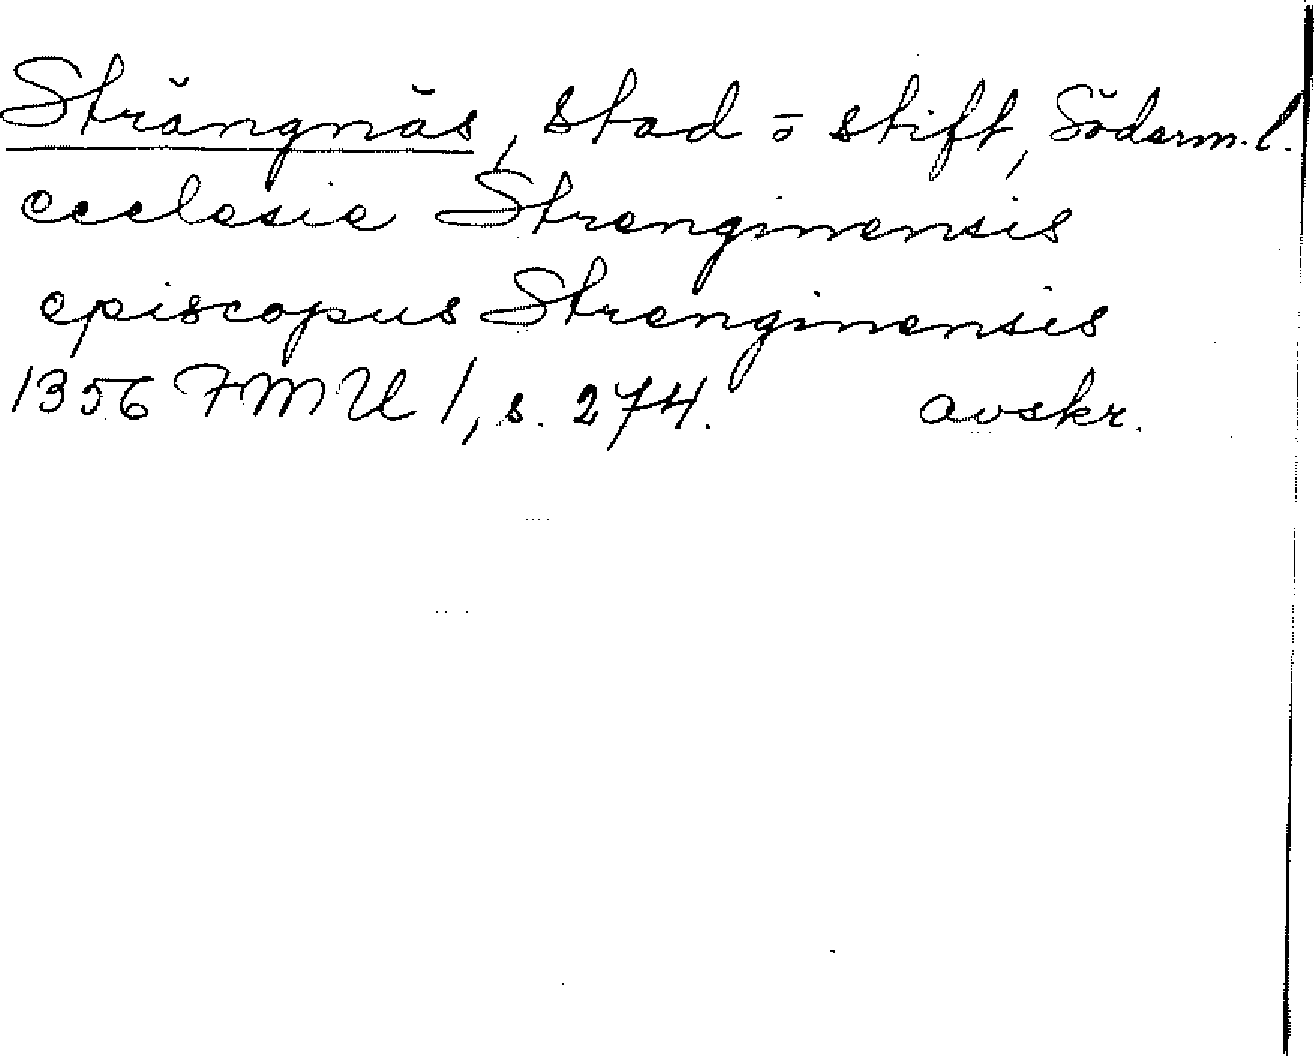 Strängnäs, stad o stift, Söderm. l.
ecclesie Strenginensis
episcopus Strenginensis
1356 FMU 1, s. 274. avskr.